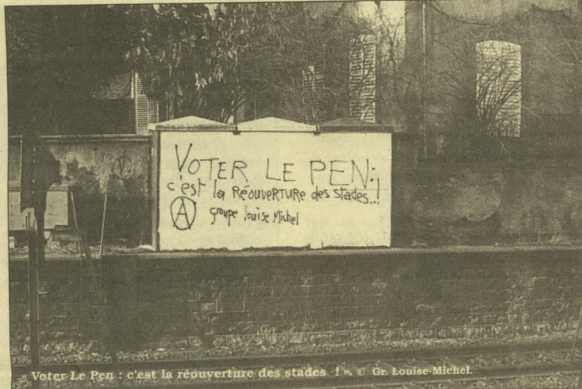 VOTER LE PEN:
c'est la RÉOUVERTURE des stades..!
Ⓐ groupe louise Michel
Voter Le Pen : c'est la réouverture des stades ! ». © Gr. Louise-Michel.